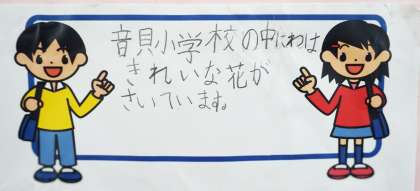 音貝小学校の中にわは
きれいな花が
さいています。